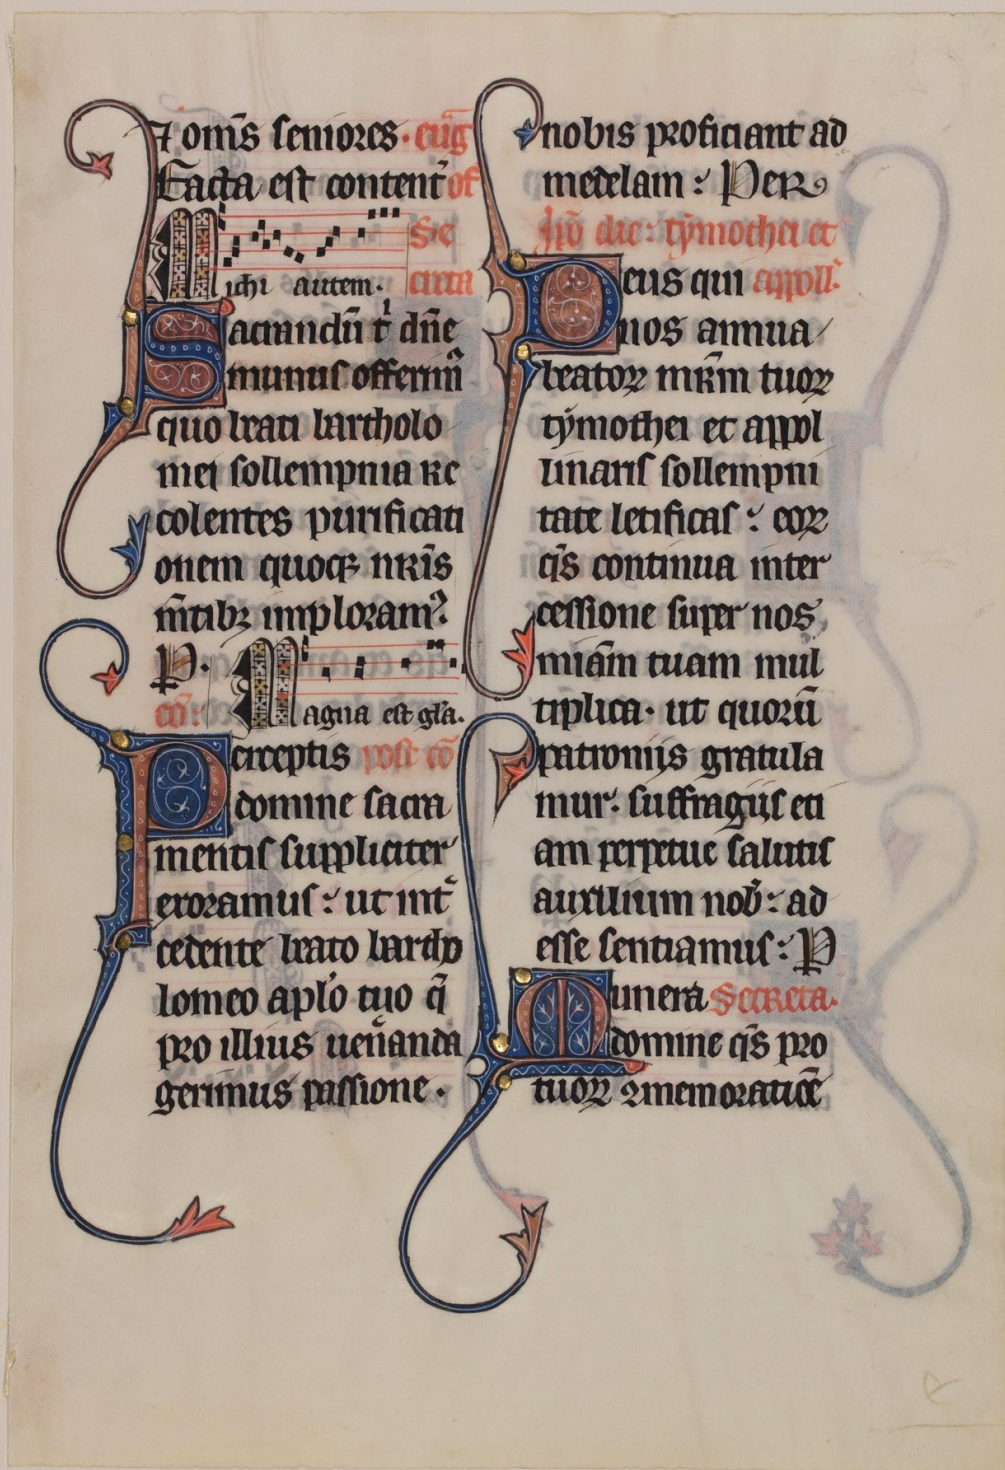 ⁊ om̄s seniores · eūg
Facta est content̄ of
Se
Michi autem · creta
Sacrandū t̄ dn̄e
munus offerim̄
quo beati bartholo
mei sollempnia re
colentes purificati
onem quoqꝫ nr̄is
m̄tibꝫ imploramꝰ
P.
cō: Magna est gl̄a.
Perceptis post cō
domine sacra
mentis suppliciter
exoramus : ut int̄
cedente beato bartho
lomeo apl̄o tuo q̄
pro illius uen̄anda
gerimus passione .
nobis proficiant ad
medelam : Per
Ip̄o die : tymothei et
Deus qui appoll̄.
nos annua
beatoꝝ mr̄m tuoꝝ
tymothei et appol
linaris sollempni
tate letificas : eoꝝ
qs̄ continua inter
cessione super nos
miām tuam mul
tiplica · ut quorū
patronijs gratula
mur · suffragijs eti
am perpetue salutis
auxilium nob̄ : ad
esse sentiamus : P
Munera Secreta.
domine qs̄ pro
tuoꝝ ꝯmemoratiōe